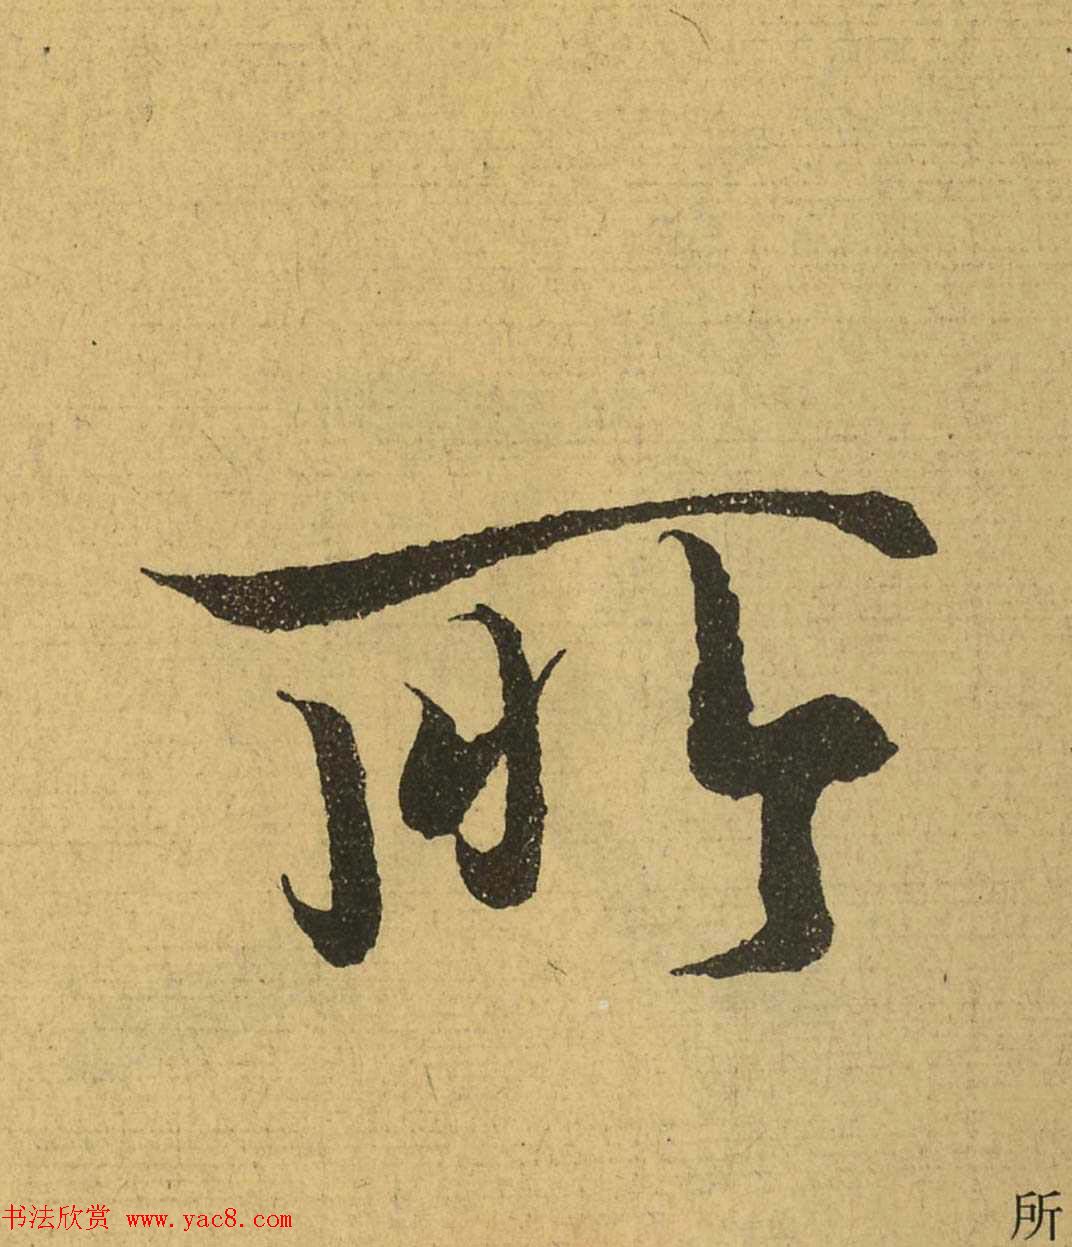 所
书法欣赏 www.yac8.com
所